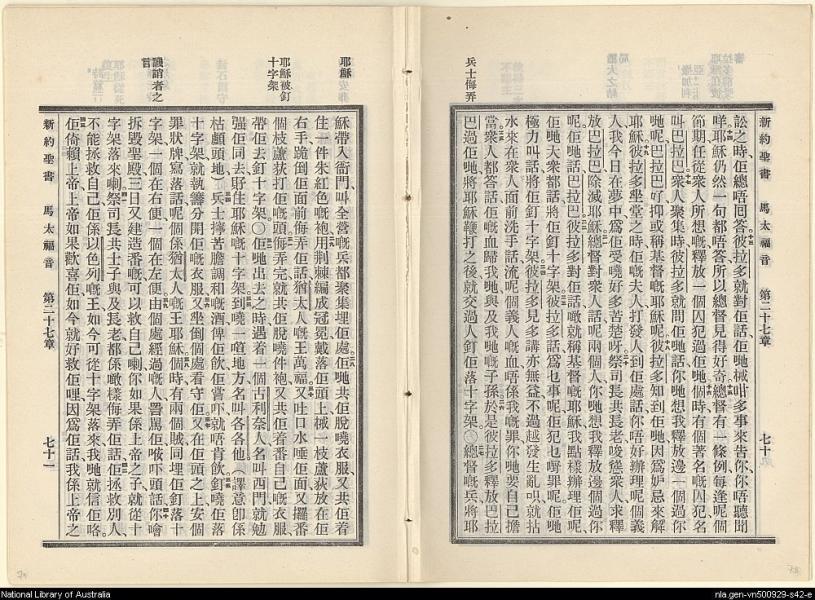 新約聖書 馬太福音 第二十七章 七十
訟之時佢總唔回答彼拉多就對佢話佢哋械咁多事來告你你唔聽聞
咩耶穌仍然一句都唔答所以總督見得好奇總督有一條例每逢呢個
節期任從衆人所想嘅釋放一個囚犯過佢哋個時有個著名嘅囚犯名
叫巴拉巴衆人聚集時彼拉多就問佢哋話你哋想我釋放邊一個過你
哋呢巴拉巴好抑或稱基督嘅耶穌呢彼拉多知到佢哋因爲妒忌來解
耶穌彼拉多坐堂之時佢嘅夫人打發人到佢處話你唔好辦理呢個義
人我今日在夢中爲佢受曉好多苦楚呀祭司長共長老唆慫衆人求釋
放巴拉巴除滅耶穌總督對衆人話呢兩個人你哋想我釋放邊個過你
呢佢哋話巴拉巴彼拉多對佢話噉就稱基督嘅耶穌我點樣辦理佢呢
佢哋大衆都話將佢釘十字架彼拉多話爲乜事呢佢犯乜嘢罪呢佢哋
極力叫話將佢釘十字架彼拉多見多講亦無益不過越發生亂呮就拈
水來在衆人面前洗手話流呢個義人嘅血唔係我嘅罪你哋要自己擔
當衆人都答話佢嘅血歸我哋與及我哋嘅子孫於是彼拉多釋放巴拉
巴過佢哋將耶穌鞭打之後就交過人釘佢落十字架○總督嘅兵將耶
兵士侮弄
新約聖書 馬太福音 第二十七章 七十一
耶穌
穌帶入衙門叫全營嘅兵都聚集埋佢處佢哋共佢脫曉衣服又共佢着
住一件朱紅色嘅袍用荆棘編成冠冕戴落佢頭上械一枝蘆荻放在佢
右手跪倒佢面前侮弄佢話猶太人嘅王萬福又吐口水唾佢面又攞番
個枝蘆荻打佢嘅頭侮弄完就共佢脫曉件袍又共佢着番自己嘅衣服
帶佢去釘十字架○佢哋出去之時遇着一個古利奈人名叫西門就勉
耶穌被釘
十字架
强佢同去孭住耶穌嘅十字架到曉一笪地方名叫各各他（譯意卽係
枯顱頭地）兵士擰苦膽調和嘅酒俾佢飲佢嘗吓就唔肯飲釘曉佢落
十字架就執籌分開佢嘅衣服又坐倒個處看守佢又在佢頭之上安個
罪狀牌寫落話呢個係猶太人嘅王耶穌個時有兩個賊同埋佢釘落十
字架一個在右便一個在左便由個處經過嘅人詈罵佢𠰲吓頭話你噲
譏誚者之
言
拆毀聖殿三日又建造番嘅可以救自己喇你如果係上帝之子就從十
字架落來喇祭司長共士子與及長老都係噉樣侮弄佢話佢拯救別人
不能拯救自己佢係以色列嘅王如今可從十字架落來我哋就信佢咯
佢倚賴上帝上帝如果歡喜佢如今就好救佢哩因爲佢話我係上帝之
National Library of Australia
nla.gen-vn500929-s42-e